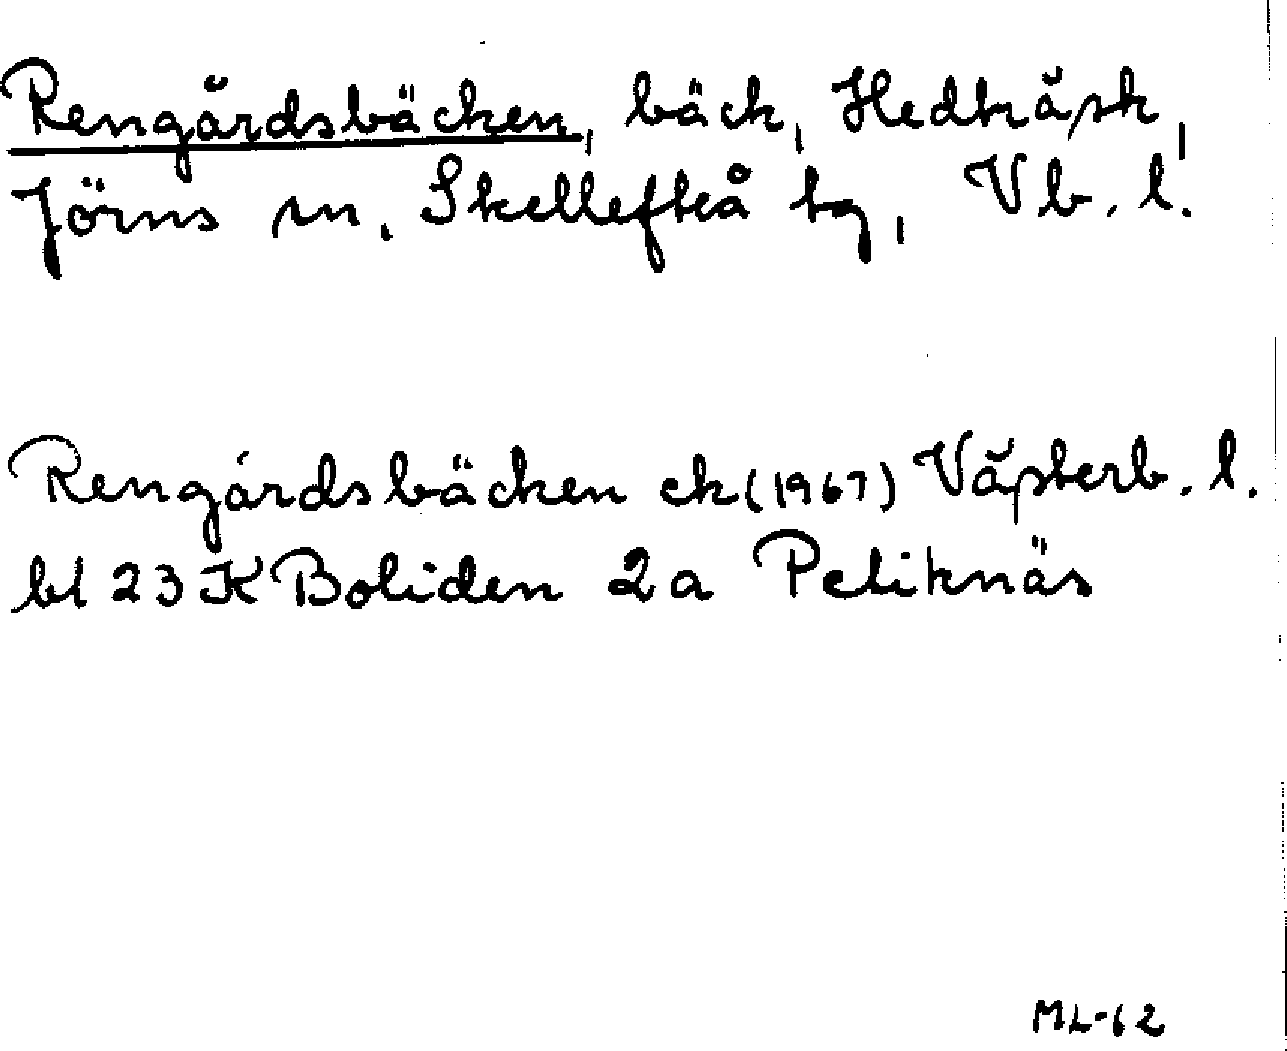 Rengårdsbäcken, bäck, Hedträsk,
Jörns sn. Skellefteå tg, Vb. l.
Rengårdsbäcken ek (1967) Västerb. l.
bl 23 K Boliden 2a Petiknäs
ML-62